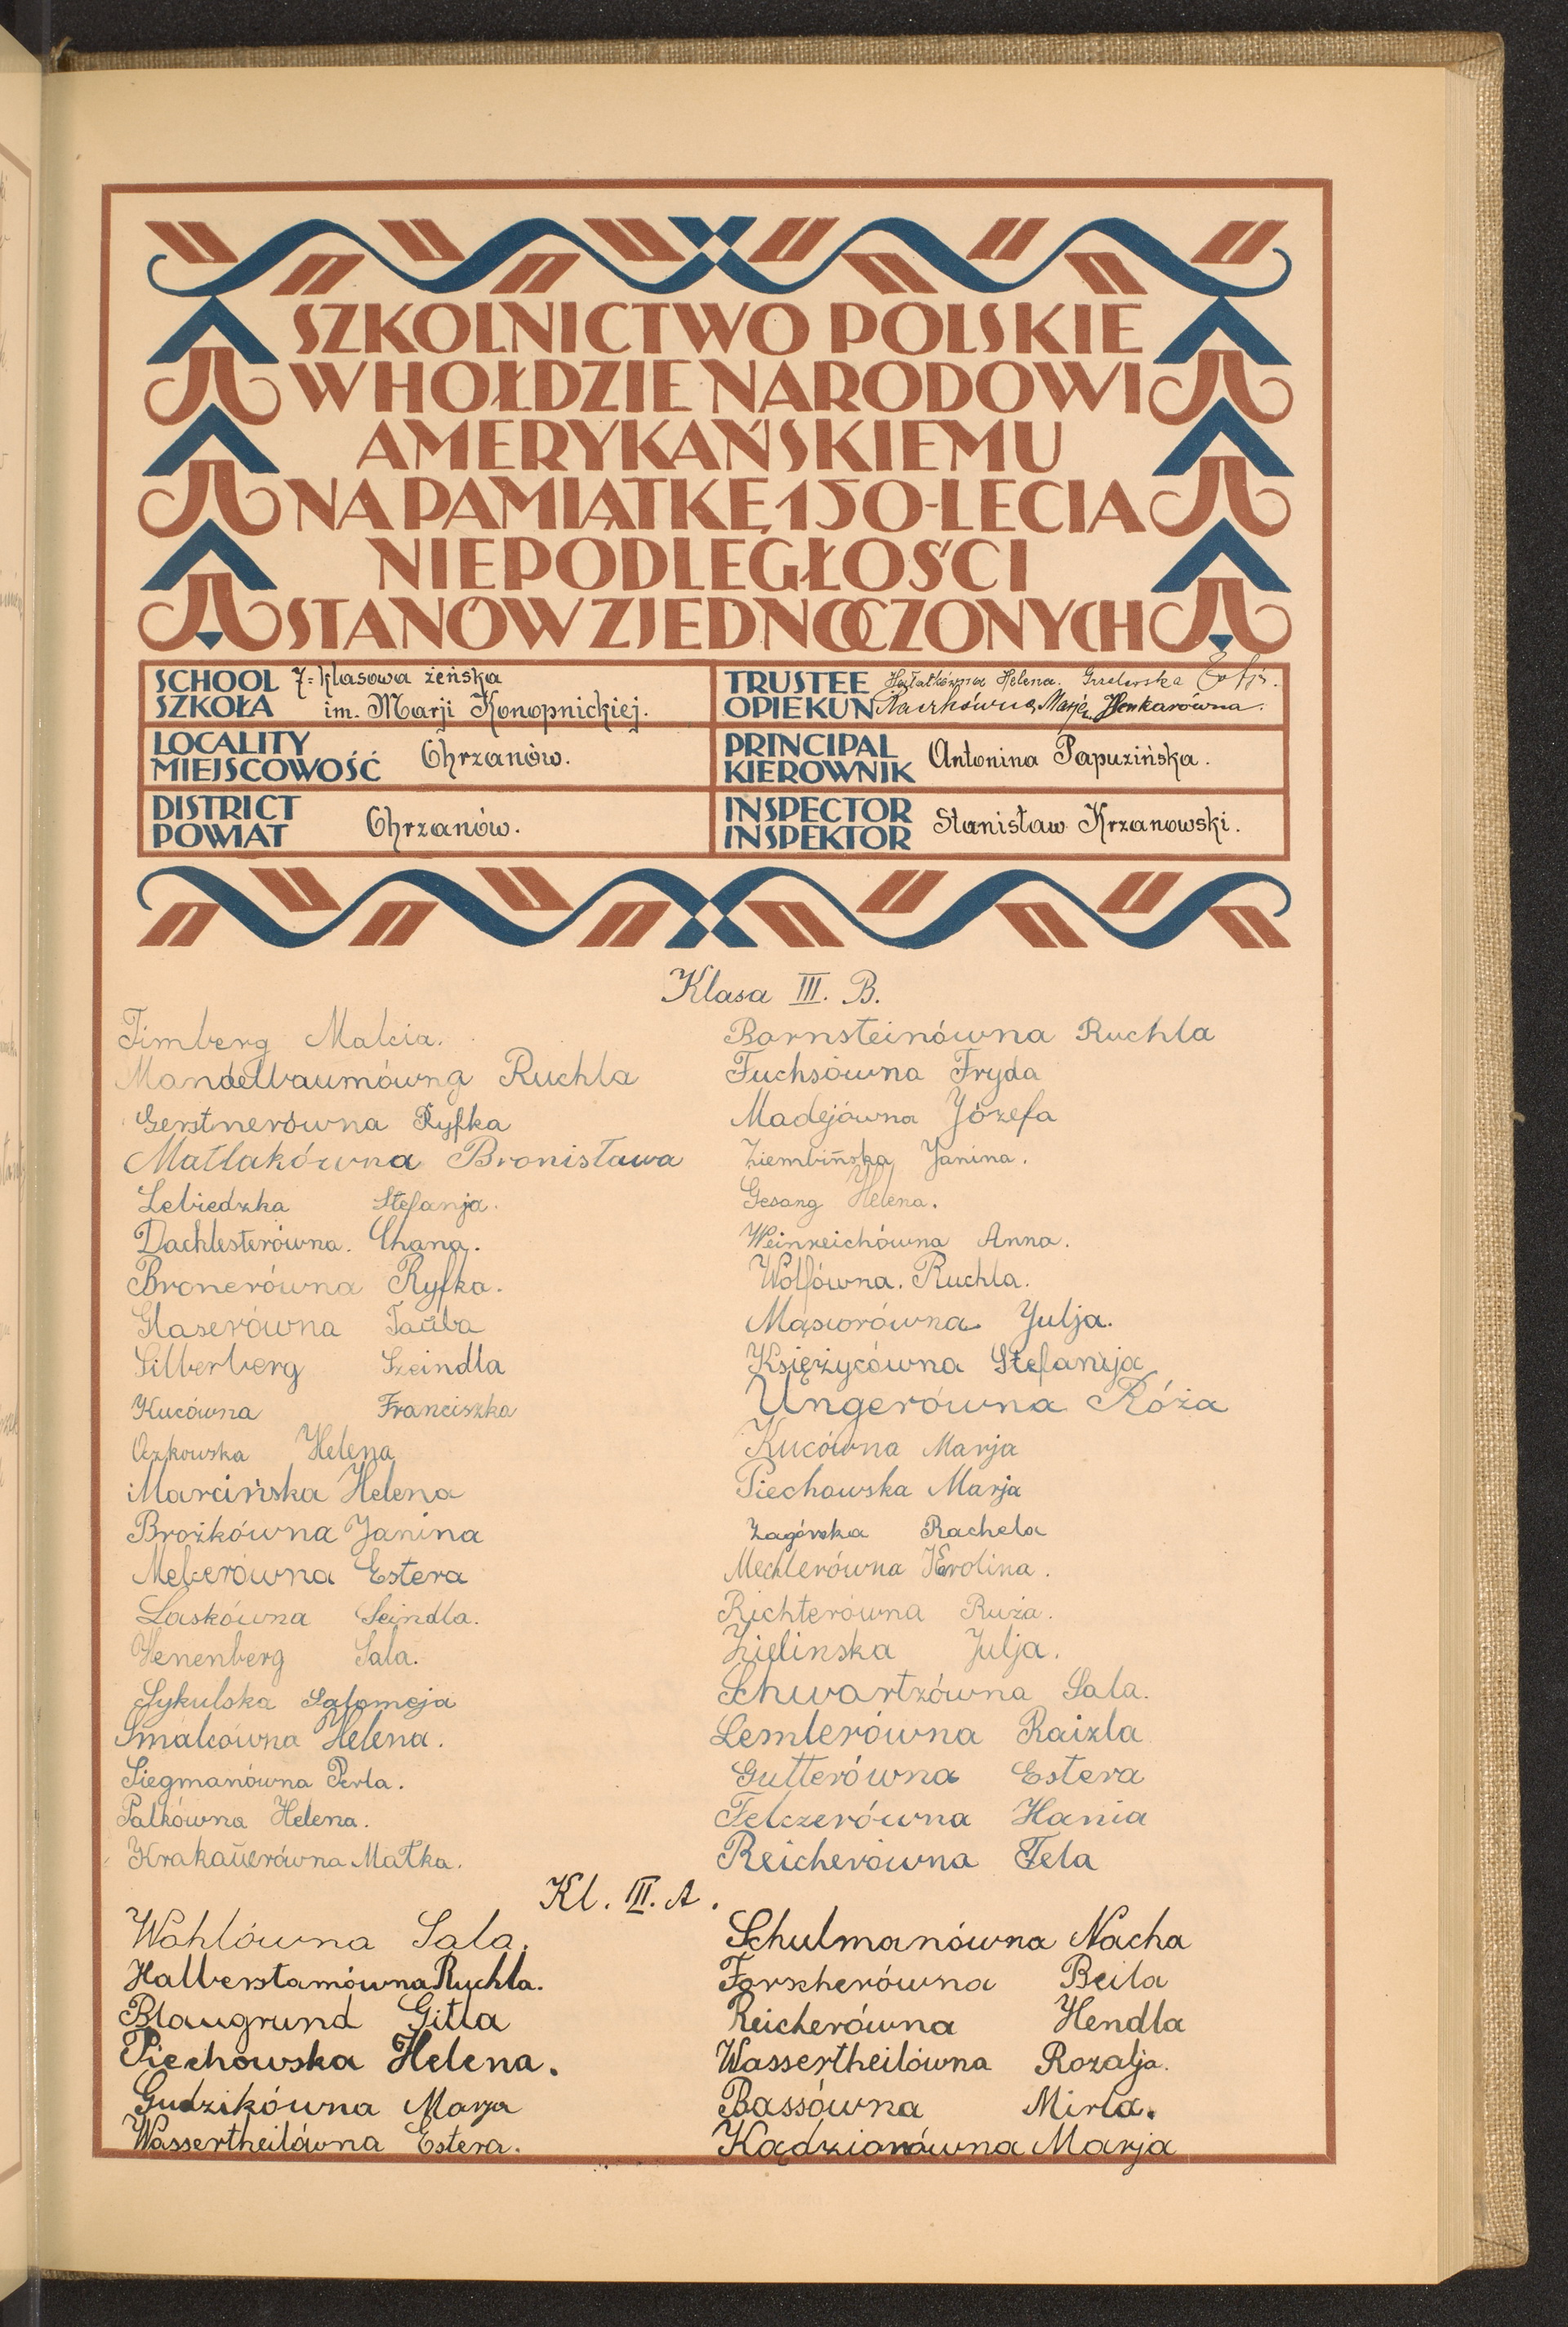 SZKOLNICTWO POLSKIE
W HOŁDZIE NARODOWI
AMERYKAŃSKIEMU
NA PAMIĄTKĘ 150-LECIA
NIEPODLEGŁOŚCI
STANÓW ZJEDNOCZONYCH
SCHOOL 7-klasowa żeńska
SZKOŁA im. Marji Konopnickiej.
TRUSTEE Helena.
OPIEKUN Marja Henkarówna.
LOCALITY
MIEJSCOWOŚĆ Chrzanów.
PRINCIPAL
KIEROWNIK Antonina Papuzińska.
DISTRICT
POWIAT Chrzanów.
INSPECTOR
INSPEKTOR Stanisław Krzanowski.
Klasa III. B.
Timberg Malcia.
Mandelbaumówna Ruchla
Gerstnerówna Ryfka
Matlakówna Bronisława
Lebiedzka Stefanja.
Dachlesterówna. Chana.
Bronerówna Ryfka.
Glaserówna Tauba
Silberberg Szeindla
Kucówna Franciszka
Oczkowska Helena
Marcińska Helena
Brożkówna Janina
Melcerówna Estera
Laskówna Seindla.
Henenberg Sala.
Sykulska Salomeja
Smalcówna Helena.
Siegmanówna Perla.
Palkówna Helena.
Krakauerówna Matka.
Bornsteinówna Ruchla
Fuchsówna Fryda
Madejówna Józefa
Ziembińska Janina.
Gesang Helena.
Weinreichówna Anna.
Wolfówna. Ruchla.
Mąsiorówna Julja.
Księżycówna Stefanja
Ungerówna Róża
Kucówna Marja
Piechowska Marja
Zagórska Rachela
Mechlerówna Karolina.
Richterówna Ruża.
Zielinska Julja.
Schwartzówna Sala.
Lemlerówna Raizla
Gutterówna Estera
Felczerówna Hania
Reicherówna Fela
Kl. III. A.
Wohlówna Sala.
Halberstamówna Ruchla.
Blaugrund Gitla
Piechowska Helena.
Gudzikówna Marja
Wassertheilówna Estera.
Schulmanówna Nacha
Forscherówna Beila
Reicherówna Hendla
Wassertheilówna Rozalja.
Bassówna Mirla.
Kądziorówna Marja